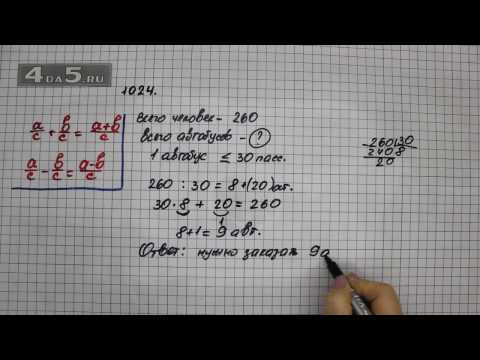 4DA5.RU
1024.
a/c + b/c = (a+b)/c
a/c - b/c = (a-b)/c
всего человек - 260
всего автобусов - ?
1 автобус ≤ 30 пасс.
260 : 30 = 8 + (20) ост.
30 · 8 + 20 = 260
1
8+1 = 9 авт.
Ответ: нужно заказать 9а
260 30
240 8
20